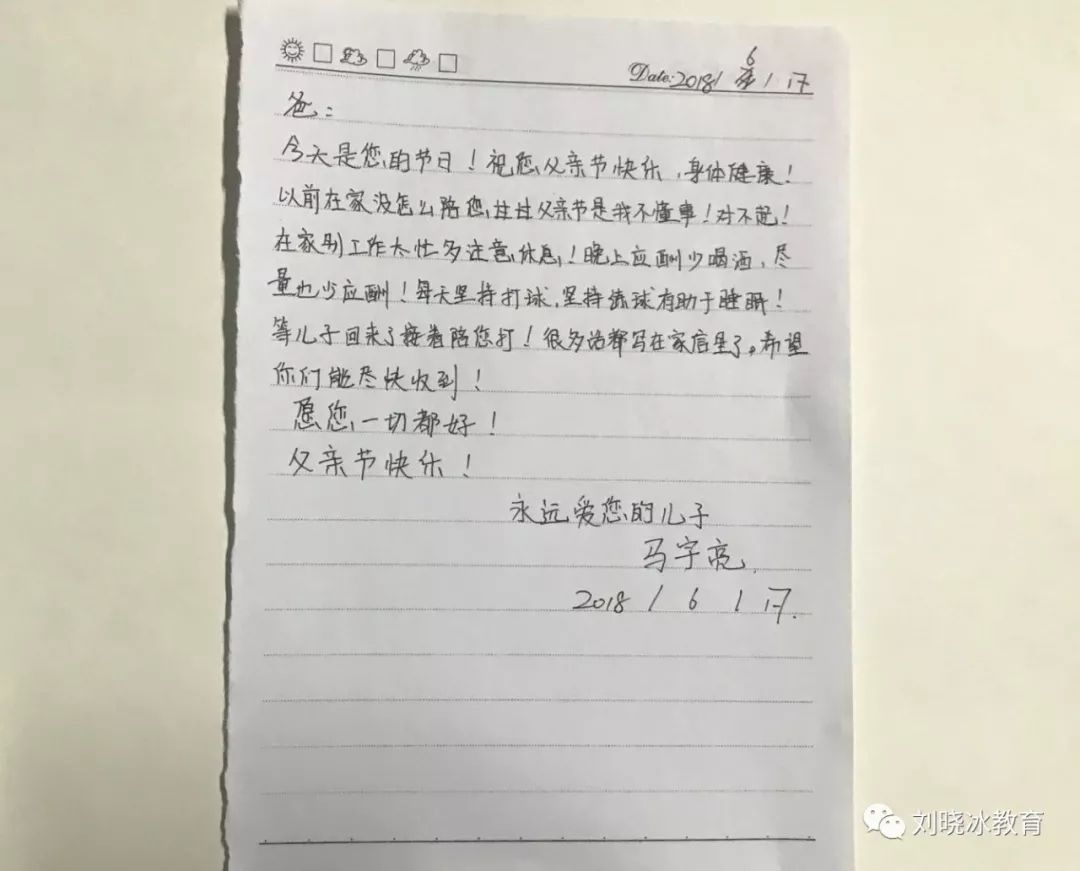 Date: 2018 / 6 / 17
爸：
今天是您的节日！祝您父亲节快乐，身体健康！
以前在家没怎么陪您，过父亲节是我不懂事！对不起！
在家别工作太忙多注意休息！晚上应酬少喝酒，尽
量也少应酬！每天坚持打球，坚持打球有助于睡眠！
等儿子回来了接着陪您打！很多话都写在家信里了。希望
你们能尽快收到！
愿您一切都好！
父亲节快乐！
永远爱您的儿子
马宇亮
2018 / 6 / 17.
刘晓冰教育